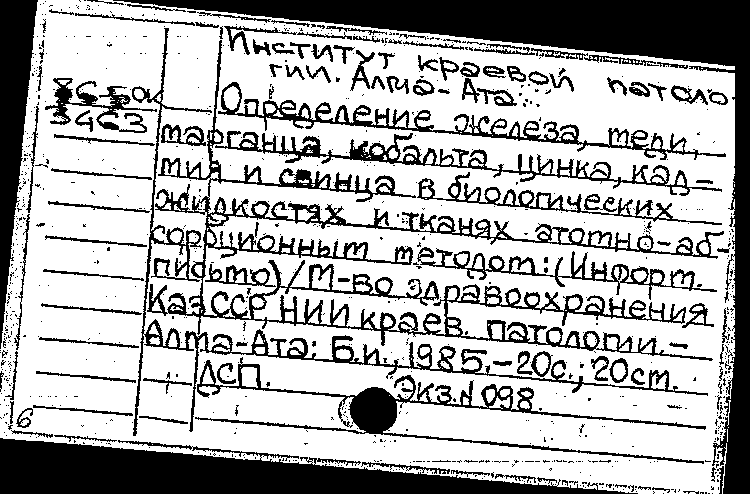 Институт краевой патоло-
гии. Алма-Ата.
Определение железа, меди,
марганца, кобальта, цинка, кад-
мия и свинца в биологических
жидкостях и тканях атомно-аб-
сорбционным методом: (Информ.
письмо) / М-во здравоохранения
КазССР, НИИ краев. патологии. -
Алма-Ата: Б.и., 1985. - 20с.; 20см.
ДСП. Экз.N 098.
3463
6